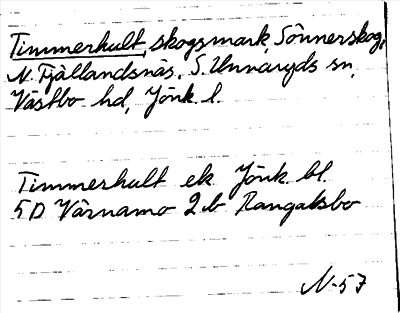 Timmerhult, skogsmark, Sönnerskog,
N. Fjällandsnäs, S. Unnaryds sn,
Västbo hd, Jönk. l.
Timmerhult ek Jönk. bl.
5D Värnamo 2b Rangaksbo
N-57